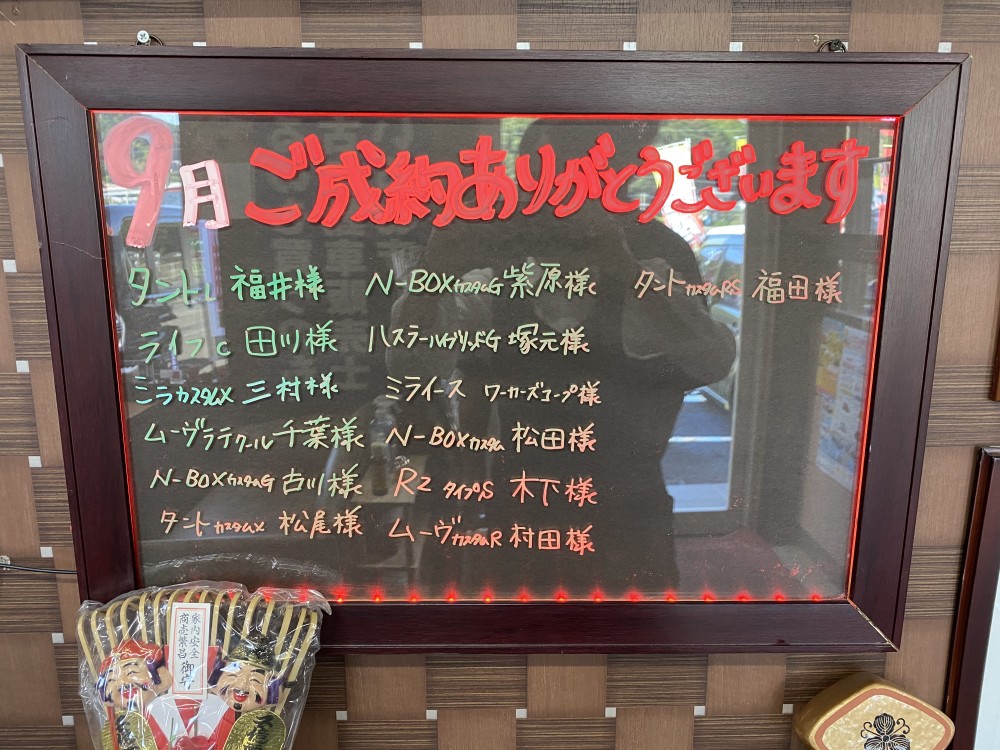 9月 ご成約ありがとうございます
タントL 福井様
ライフC 田川様
ミラカスタムX 三村様
ムーヴラテクール 千葉様
N-BOXカスタムG 古川様
タントカスタムX 松尾様
N-BOXカスタムG 紫原様
ハスラーハイブリッドG 塚元様
ミライース ワーカーズコープ様
N-BOXカスタム 松田様
R2 タイプS 木下様
ムーヴカスタムR 村田様
タントカスタムRS 福田様
家内安全
商売繁昌